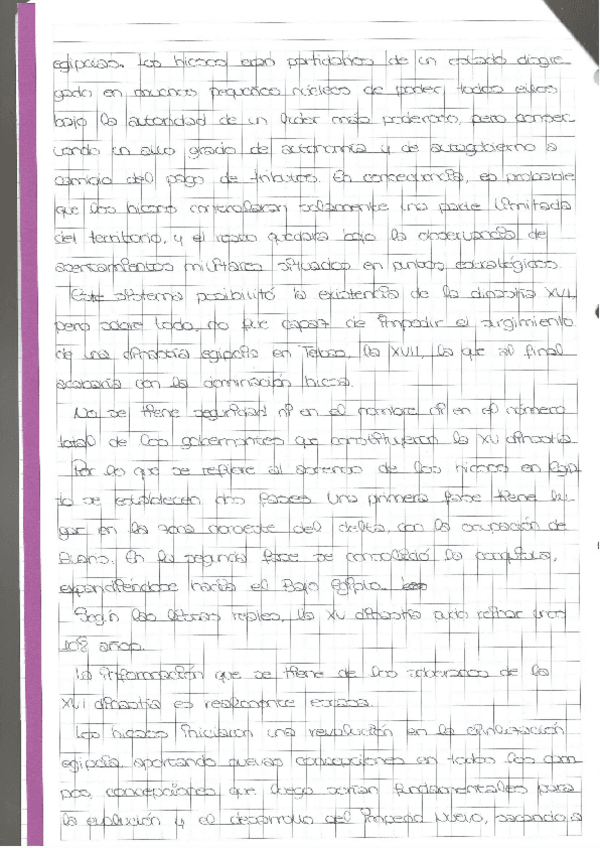 egipcias. Los hicsos eran partidarios de un estado disgre
gado en diversos pequeños núcleos de poder, todos ellos
bajo la autoridad de un líder más poderoso, pero conser
vando un alto grado de autonomía y de autogobierno a
cambio del pago de tributos. En consecuencia, es probable
que los hicsos controlaran solamente una parte limitada
del territorio, y el resto quedara bajo la observación de
asentamientos militares situados en puntos estratégicos.
Este sistema posibilitó la existencia de la dinastía XVI,
pero sobre todo, no fue capaz de impedir el surgimiento
de una dinastía egipcia en Tebas, la XVII, la que al final
acabaría con la dominación hicsa.
No se tiene seguridad ni en el nombre ni en el número
total de los gobernantes que constituyeron la XV dinastía.
Por lo que se refiere al ascenso de los hicsos en Egip
to se establecen dos fases. Una primera fase tiene lu
gar en la zona noroeste del delta, con la ocupación de
Avaris. En la segunda fase se consolidó la conquista,
expandiéndose hacia el Bajo Egipto.
Según las listas reales, la XV dinastía pudo reinar unos
108 años.
La información que se tiene de los soberanos de la
XVI dinastía es realmente escasa.
Los hicsos iniciaron una revolución en la civilización
egipcia aportando nuevas concepciones en todos los cam
pos, concepciones que luego serían fundamentales para
la evolución y el desarrollo del Imperio Nuevo, sacando a